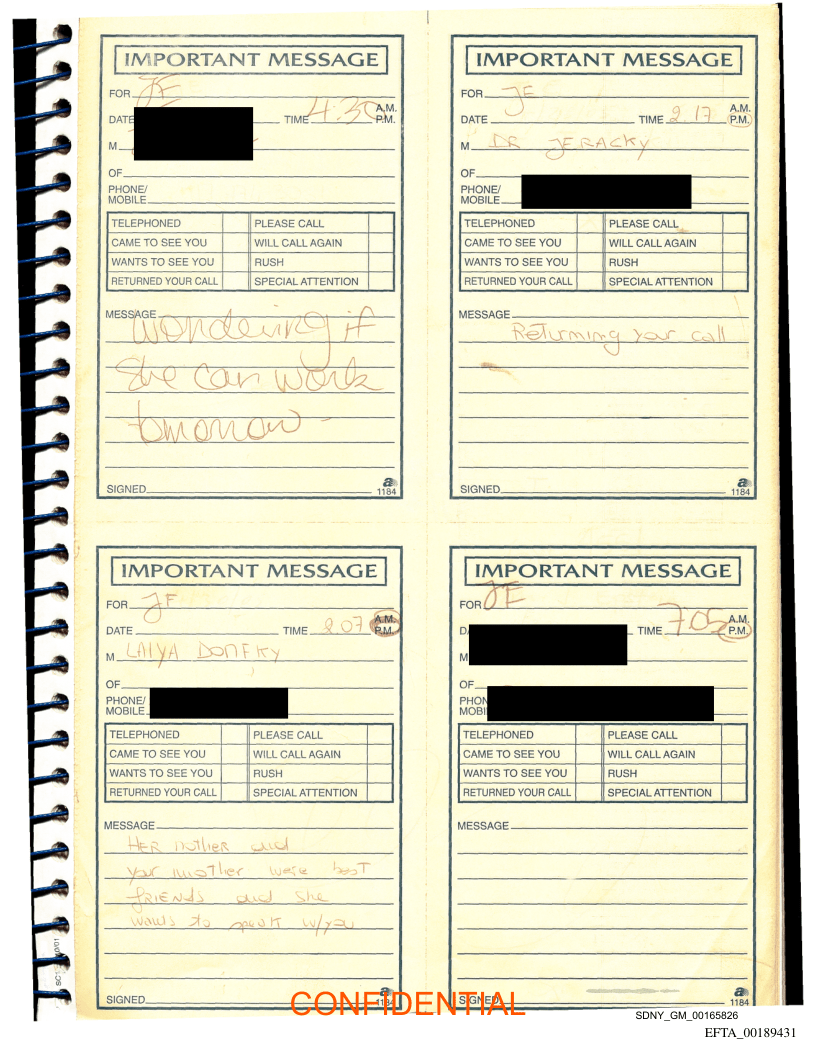 IMPORTANT MESSAGE
FOR JE
DATE TIME 4:30 A.M.
P.M.
M
OF
PHONE/
MOBILE
TELEPHONED PLEASE CALL
CAME TO SEE YOU WILL CALL AGAIN
WANTS TO SEE YOU RUSH
RETURNED YOUR CALL SPECIAL ATTENTION
MESSAGE wondering if
she can work
tomorrow -
SIGNED
1184
IMPORTANT MESSAGE
FOR JE
DATE TIME 2.17 A.M.
P.M.
M DR JERACKY
OF
PHONE/
MOBILE
TELEPHONED PLEASE CALL
CAME TO SEE YOU WILL CALL AGAIN
WANTS TO SEE YOU RUSH
RETURNED YOUR CALL SPECIAL ATTENTION
MESSAGE
Returning your call
SIGNED
1184
IMPORTANT MESSAGE
FOR JE
DATE TIME 2.07 A.M.
P.M.
M LAIYA
OF
PHONE/
MOBILE
TELEPHONED PLEASE CALL
CAME TO SEE YOU WILL CALL AGAIN
WANTS TO SEE YOU RUSH
RETURNED YOUR CALL SPECIAL ATTENTION
MESSAGE
HER mother and
your mother were best
FRIENDS and she
wants to speak w/you
SIGNED
IMPORTANT MESSAGE
FOR JE
TIME 7:05 A.M.
P.M.
M
OF
MOBILE
TELEPHONED PLEASE CALL
CAME TO SEE YOU WILL CALL AGAIN
WANTS TO SEE YOU RUSH
RETURNED YOUR CALL SPECIAL ATTENTION
MESSAGE
SIGNED
1184
CONFIDENTIAL
SDNY_GM_00165826
EFTA_00189431